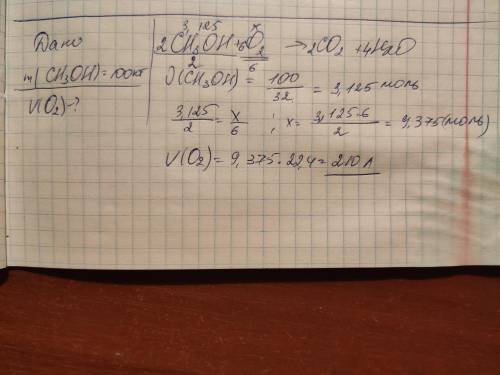 Дано
m(CH3OH)=100кг
V(O2)-?
3,125 x
2CH3OH+6O2 → 2CO2 + 4H2O
2 6
ν(CH3OH) = 100/32 = 3,125 моль
3,125/2 = x/6 ; x = 3,125·6/2 = 9,375(моль)
V(O2) = 9,375·22,4 = 210 л